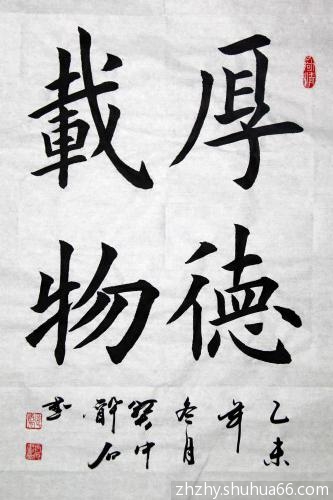 厚德
載物
乙未
年
冬月
癸中
醉石
书
zhzhy.shuhua88.com